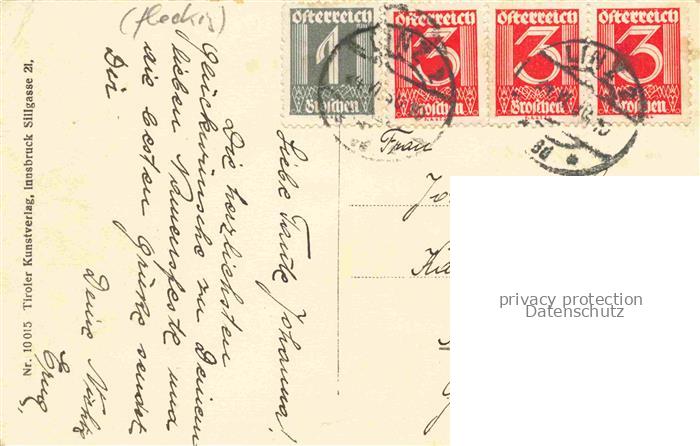 (fleckig)
Österreich
1
Groschen
Österreich
3
Groschen
Österreich
3
Groschen
Österreich
3
Groschen
LINZ
LINZ
Frau
privacy protection
Datenschutz
Liebe Tante Johanna!
Die herzlichsten
Glückwünsche zu Deinem
lieben Namensfeste und
die besten Grüße sendet
Dir
Deine Nichte
Nr. 10015 Tiroler Kunstverlag, Innsbruck Sillgasse 21.